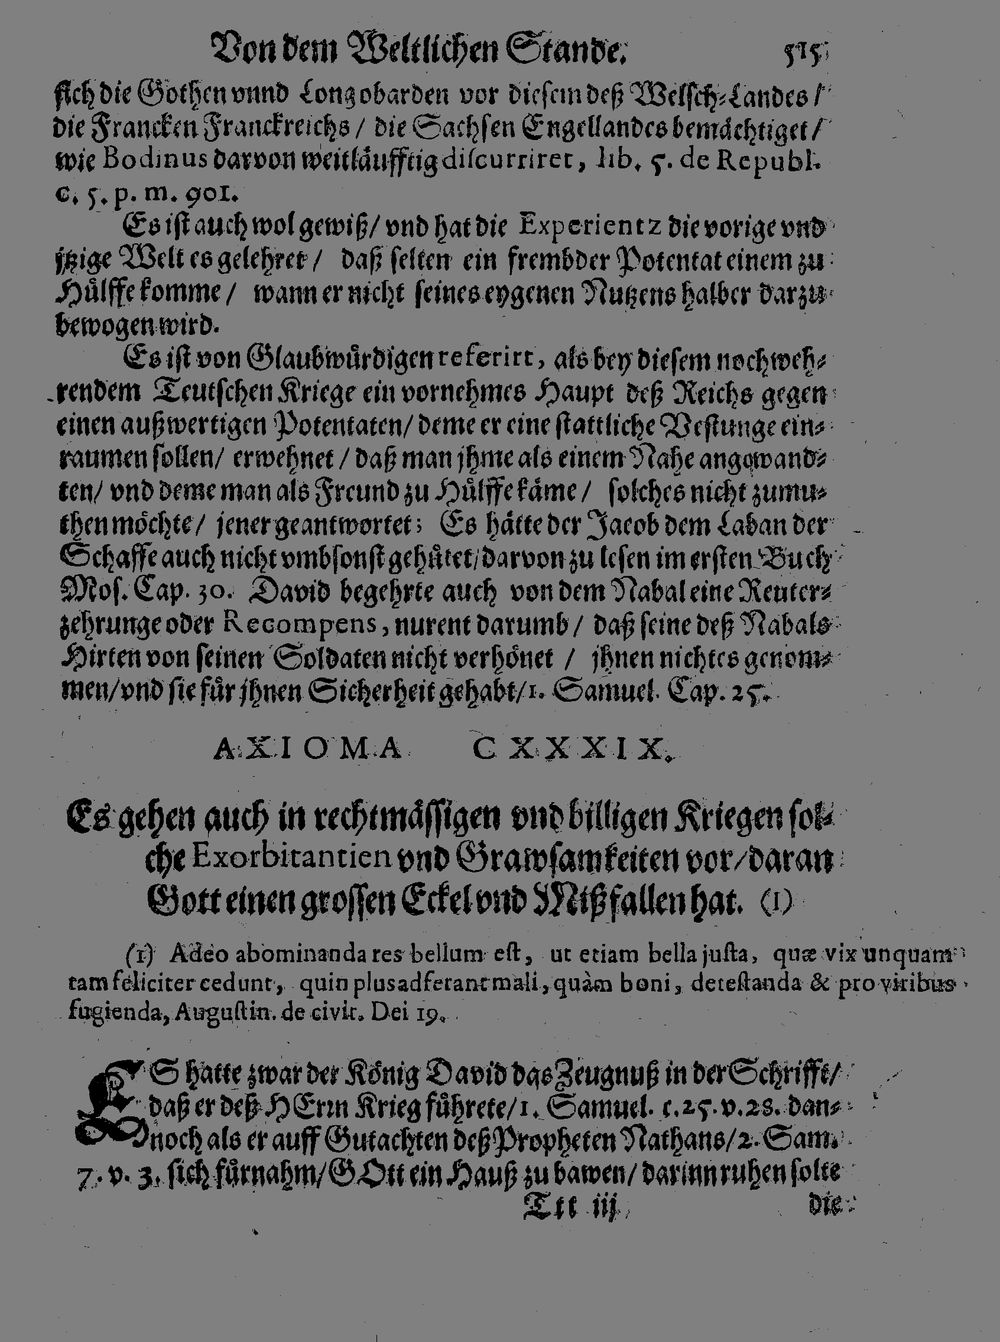 Von dem Weltlichen Stande. 515
sich die Gothen vnnd Longobarden vor diesem deß Welsch-Landes /
die Francken Franckreichs / die Sachsen Engellandes bemächtiget /
wie Bodinus darvon weitläufftig discurriret, lib. 5. de Republ.
c. 5. p. m. 901.
Es ist auch wol gewiß / vnd hat die Experientz die vorige vnd
jtzige Welt es gelehret / daß selten ein frembder Potentat einem zu
Hülffe komme / wann er nicht seines eygenen Nutzens halber darzu
bewogen wird.
Es ist von Glaubwürdigen referirt, als bey diesem noch weh-
rendem Teutschen Kriege ein vornehmes Haupt deß Reichs gegen
einen außwertigen Potentaten / deme er eine stattliche Vestunge ein-
raumen sollen / erwehnet / daß man jhme als einem Nahe angewand-
ten / vnd deme man als Freund zu Hülffe käme / solches nicht zumu-
then möchte / jener geantwortet; Es hätte der Jacob dem Laban der
Schaffe auch nicht vmbsonst gehütet / darvon zu lesen im ersten Buch
Mos. Cap. 30. David begehrte auch von dem Nabal eine Reuter-
zehrunge oder Recompens, nur ent darumb / daß seine deß Nabals
Hirten von seinen Soldaten nicht verhönet / jhnen nichtes genom-
men / vnd sie für jhnen Sicherheit gehabt / 1. Samuel. Cap. 25.
AXIOMA CXXXIX.
Es gehen auch in rechtmässigen vnd billigen Kriegen sol-
che Exorbitantien vnd Grawsamkeiten vor / daran
Gott einen grossen Eckel vnd Mißfallen hat. (1)
(1) Adeo abominanda res bellum est, ut etiam bella justa, quæ vix unquam
tam feliciter cedunt, quin plus adferant mali, quàm boni, detestanda & pro viribus
fugienda, Augustin. de civit. Dei 19.
ES hatte zwar der König David das Zeugnuß in der Schrifft /
daß er deß HErrn Krieg führete / 1. Samuel. c. 25. v. 28. dan-
noch als er auff Gutachten deß Propheten Nathans / 2. Sam.
7. v. 3. sich fürnahm / GOtt ein Hauß zu bawen / darinn ruhen solte
Ttt iij die